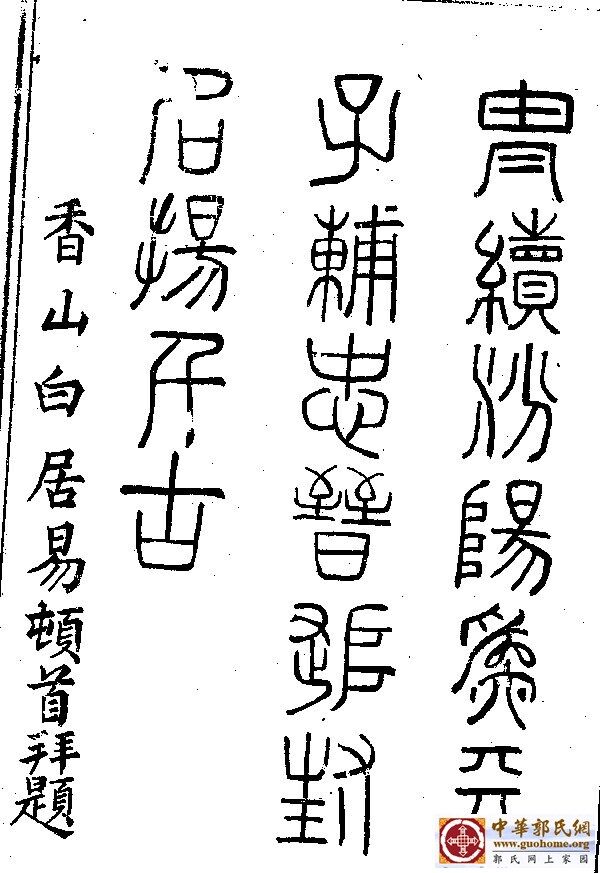 胄續汾陽爲天
子輔忠晉追封
名揚千古
香山白居易頓首拜題
中華郭氏網
www.guohome.org
郭氏网上家园